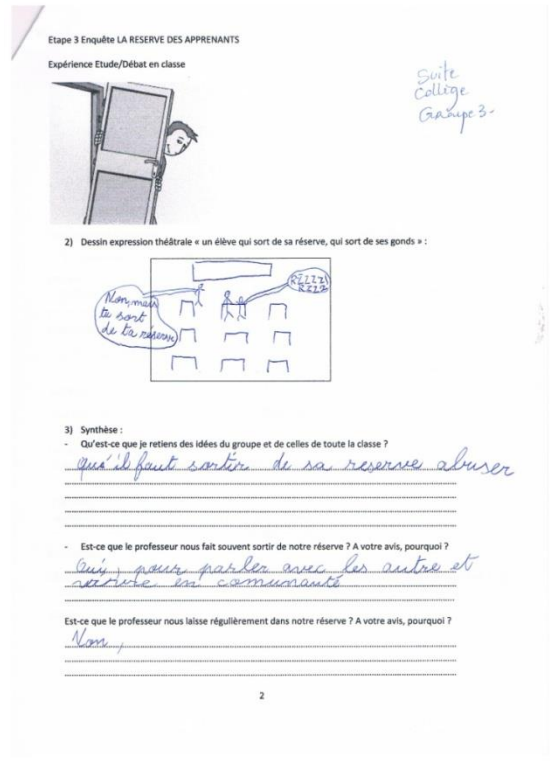 Etape 3 Enquête LA RESERVE DES APPRENANTS
Expérience Etude/Débat en classe
Suite
Collège
Groupe 3-
2) Dessin expression théâtrale « un élève qui sort de sa réserve, qui sort de ses gonds » :
RZZZZ
RZZZ
Non, mais
tu sort
de ta réserve
3) Synthèse :
- Qu'est-ce que je retiens des idées du groupe et de celles de toute la classe ?
qu'il faut sortir de sa reserve abuser
- Est-ce que le professeur nous fait souvent sortir de notre réserve ? A votre avis, pourquoi ?
Oui, pour parler avec les autre et
en comunauté
Est-ce que le professeur nous laisse régulièrement dans notre réserve ? A votre avis, pourquoi ?
Non,
2